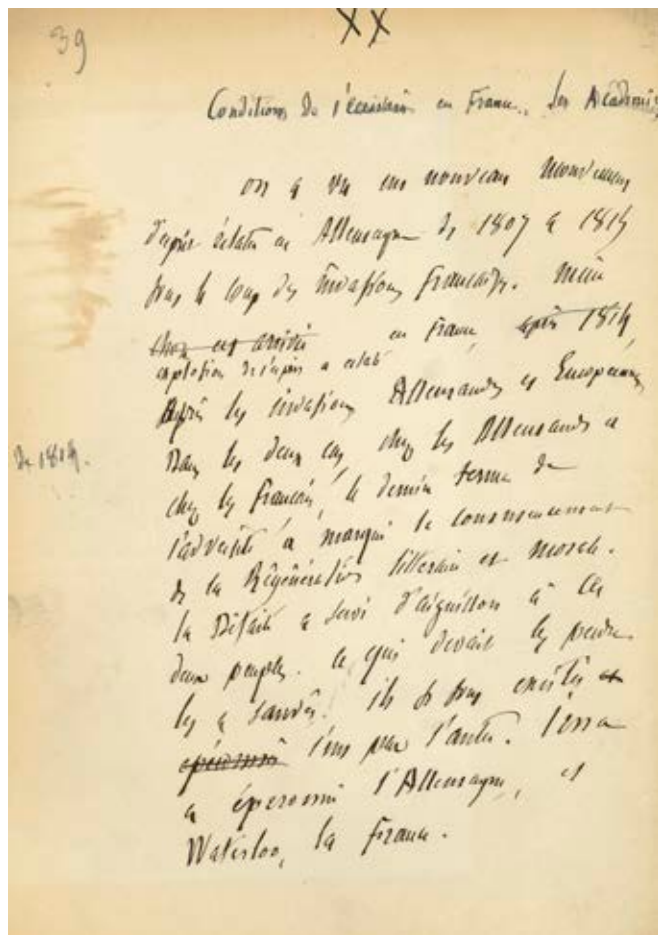 39
XX
Conditions de l'écrivain en France. Les Académies
on a vu un nouveau mouvement
d'esprit éclater en Allemagne de 1807 à 1814
sous le coup des invasions françaises. même
chose est arrivée en France après 1814
explosion de l'esprit a éclaté
Après les invasions Allemandes et Européennes
de 1814.
Dans les deux cas, chez les Allemands et
chez les français, le dernier terme de
l'adversité a marqué le commencement
de la Régénération littéraire et morale.
la Défaite a servi d'aiguillon à ces
deux peuples. ce qui devait les perdre
les a sauvés. ils se sont excités et
éperonnés l'un par l'autre. Iéna
a éperonné l'Allemagne, et
Waterloo, la France.